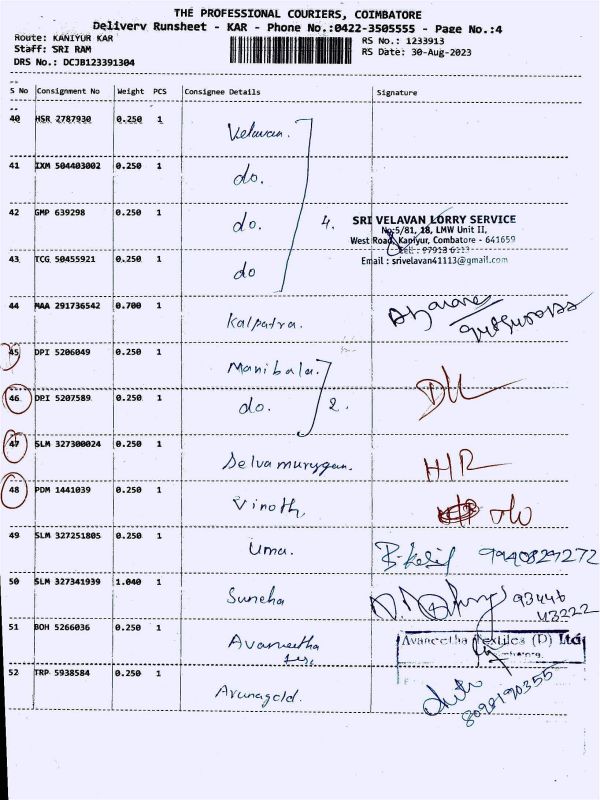 THE PROFESSIONAL COURIERS, COIMBATORE
Delivery Runsheet - KAR - Phone No.:0422-3505555 - Page No.:4
Route: KANIYUR KAR
RS No.: 1233913
Staff: SRI RAM
RS Date: 30-Aug-2023
DRS No.: DCJB123391304
S No Consignment No Weight PCS Consignee Details Signature
40 HSR 2787930 0.250 1 Velavan.
41 IXM 504403002 0.250 1 do.
42 GMP 639298 0.250 1 do. 4.
SRI VELAVAN LORRY SERVICE
No:5/81, 18, LMW Unit II,
West Road, Kaniyur, Combatore - 641659
Cell : 97913 6113
Email : srivelavan41113@gmail.com
43 TCG 50455921 0.250 1 do
44 MAA 291736542 0.700 1 Kalpatra.
45 DPI 5206049 0.250 1 Manibala.
46 DPI 5207589 0.250 1 do. 2.
47 SLM 327300024 0.250 1 Selvamurugan.
48 PDM 1441039 0.250 1 Vinoth
49 SLM 327251805 0.250 1 Uma. 9940829272
50 SLM 327341939 1.040 1 Suneha 93446
43222
51 BOH 5266036 0.250 1 Avaneetha
Avaneetha Textiles (P) Ltd
52 TRP 5938584 0.250 1 Arunagold.
8098190355